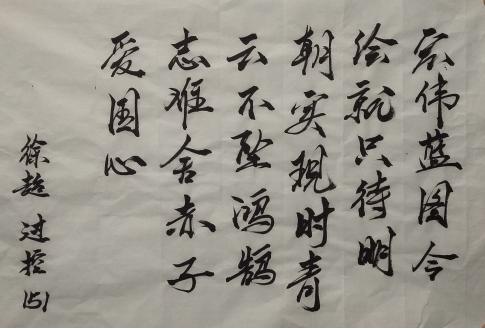 宏伟蓝图今
绘就只待明
朝实现时青
云不坠鸿鹄
志难舍赤子
爱国心
徐超 过控151